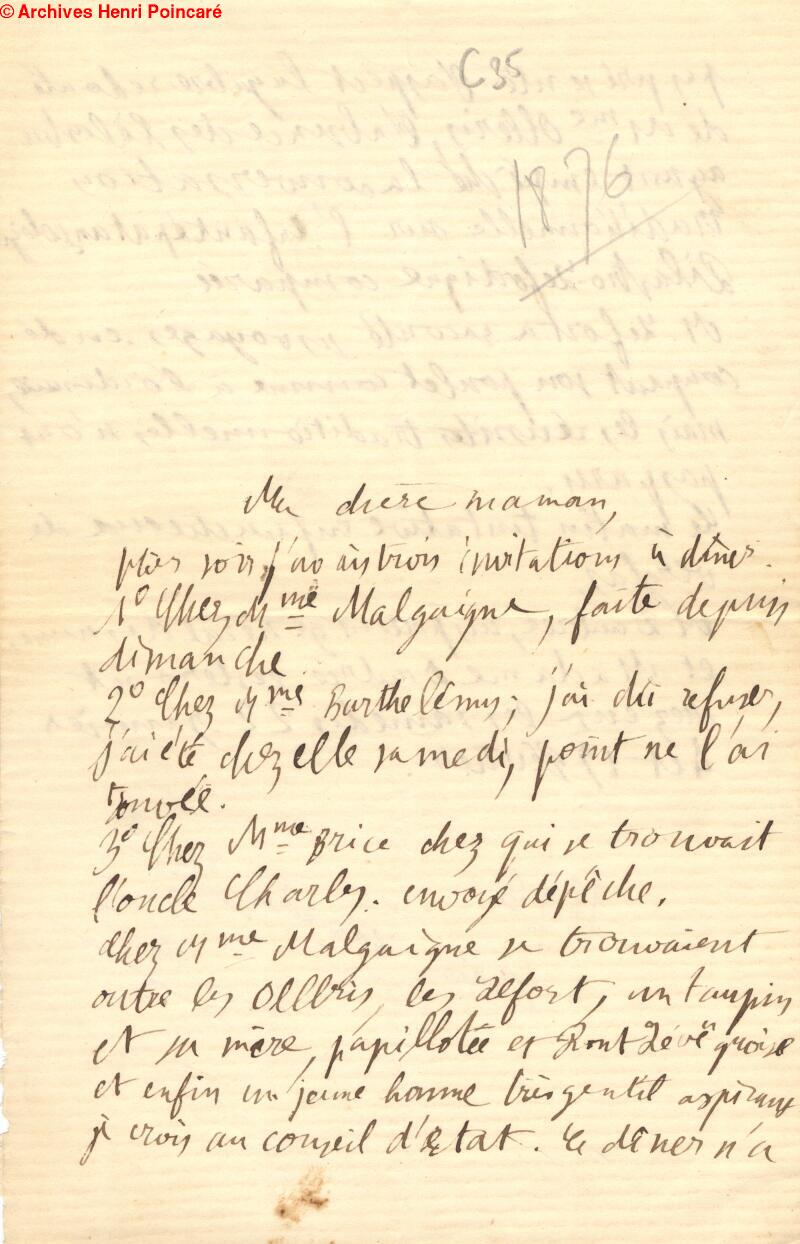 © Archives Henri Poincaré
C35
1876
Ma chère maman,
hier soir j'avais trois invitations à dîner.
1° Chez Mme Malgaigne, faite depuis
dimanche.
2° Chez Mme Barthelémy; j'ai dû refuser,
j'ai été chez elle samedi, point ne l'ai
trouvée.
3° Chez Mme Brice chez qui se trouvait
l'oncle Charles. envoyé dépêche.
chez Mme Malgaigne se trouvaient
outre les Olleris, les Lefort, un taupin
et sa mère, papillotée et Pont Lévêquoise
et enfin un jeune homme très gentil aspirant
je crois au conseil d'Etat. Le dîner n'a